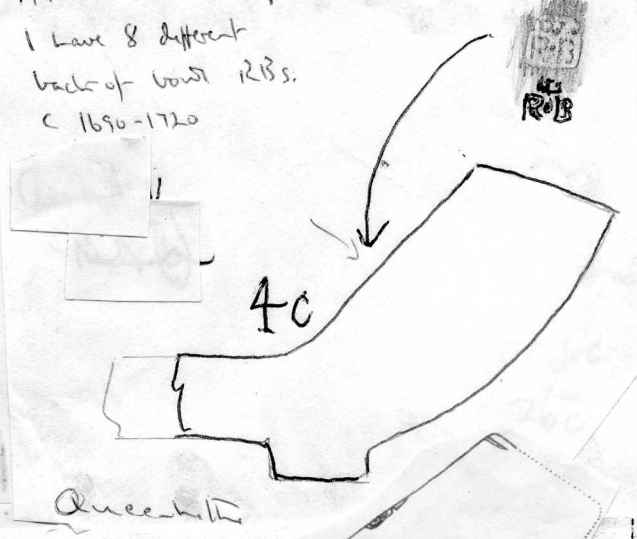 I have 8 different
back of bowl RBs.
c 1690-1720
R·B
R·B
4c
Queenhithe